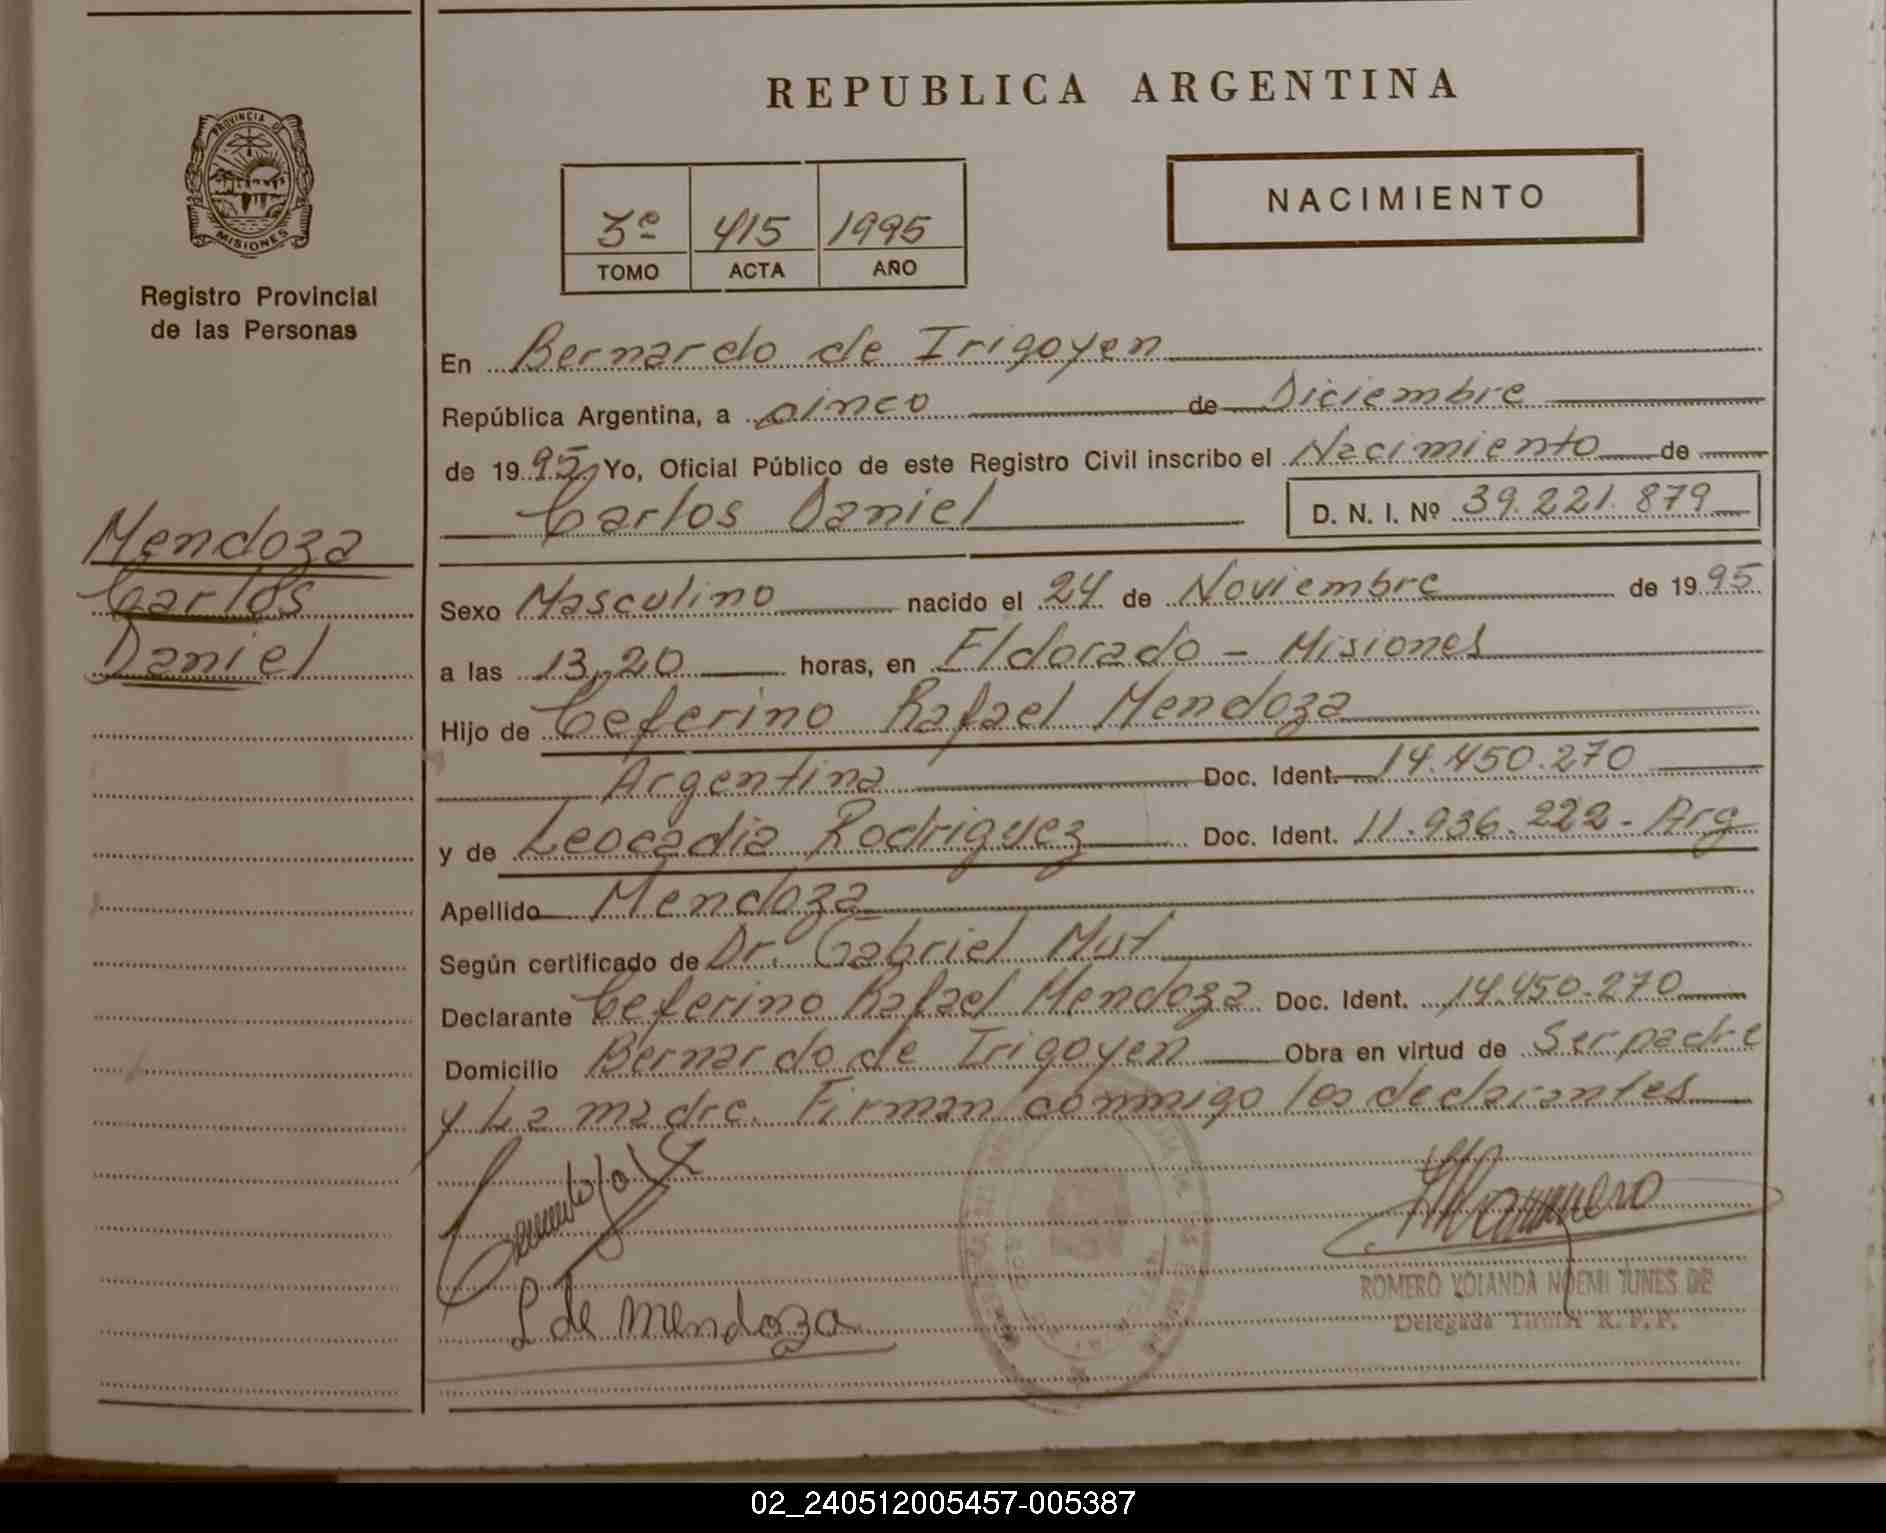 REPUBLICA ARGENTINA
PROVINCIA DE
MISIONES
Registro Provincial
de las Personas
NACIMIENTO
3º 415 1995
TOMO ACTA AÑO
En Bernardo de Irigoyen
República Argentina, a cinco de Diciembre
de 1995, Yo, Oficial Público de este Registro Civil inscribo el Nacimiento de
Carlos Daniel D. N. I. Nº 39.221.879
Mendoza
Carlos
Daniel
Sexo Masculino nacido el 24 de Noviembre de 1995
a las 13,20 horas, en Eldorado - Misiones
Hijo de Ceferino Rafael Mendoza
Argentina Doc. Ident. 14.450.270
y de Leocadia Rodriguez Doc. Ident. 11.936.222 - Arg
Apellido Mendoza
Según certificado de Dr. Gabriel Mut
Declarante Ceferino Rafael Mendoza Doc. Ident. 14.450.270
Domicilio Bernardo de Irigoyen Obra en virtud de Ser padre
y La madre. Firman conmigo los declarantes
L de Mendoza
ROMERO YOLANDA NOEMI TUNES DE
Delegada Titular R. P. P.
02_240512005457-005387